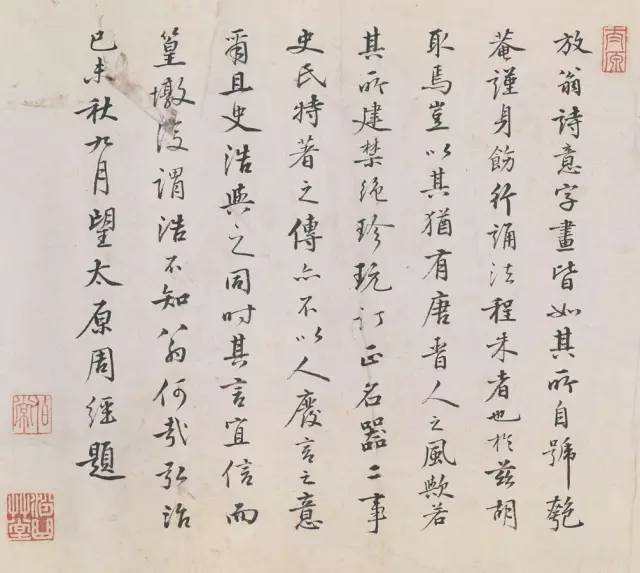 放翁詩意字畫皆如其所自號匏
菴謹身飭行誦法程朱者也於茲胡
取焉豈以其猶有唐晋人之風歟若
其所建禁絕珍玩訂正名器二事
史氏特著之傳亦不以人廢言之意
爾且史浩與之同時其言宜信而
篁墩沒謂浩不知翁何哉弘治
己未秋九月望太原周經題